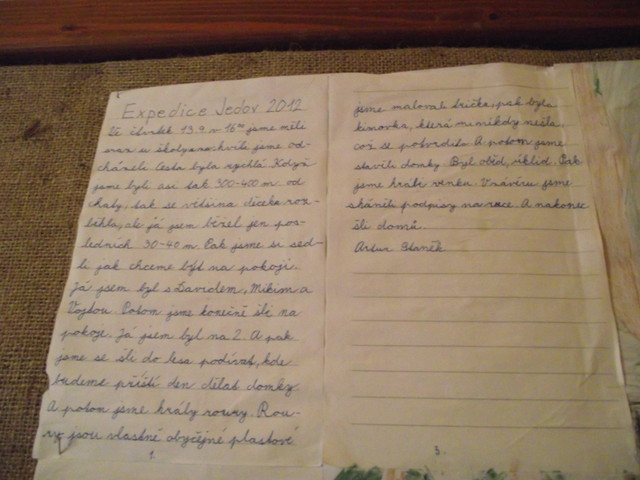 Expedice Jedov 2012
Ve čtvrtek 13.9. v 16⁰⁰ jsme měli
sraz u školy a o chvíli jsme od-
cházeli. Cesta byla rychlá. Když
jsme byli asi tak 300-400 m od
chaty, tak se většina dicek a roz-
běhla, ale já jsem běžel jen pos-
ledních 30-40 m. Pak jsme si sed-
li jak chceme být na pokoji.
Já jsem byl s Davidem, Mikim a
Vojtou. Potom jsme konečně šli na
pokoje. Já jsem byl na 2. A pak
jsme se šli do lesa podívat, kde
budeme příští den dělat domky.
A potom jsme hrály roury. Rou-
ry jsou vlastně obyčejné plastové
1.
jsme malovali trička, pak byla
kinovka, která mi nikdy nešla,
což se potvrdilo. A potom jsme
stavěli domky. Byl oběd, úklid. Pak
jsme hráli venku. V závěru jsme
sháněli podpisy na ruce. A nakonec
šli domů.
Artur Staněk
3.